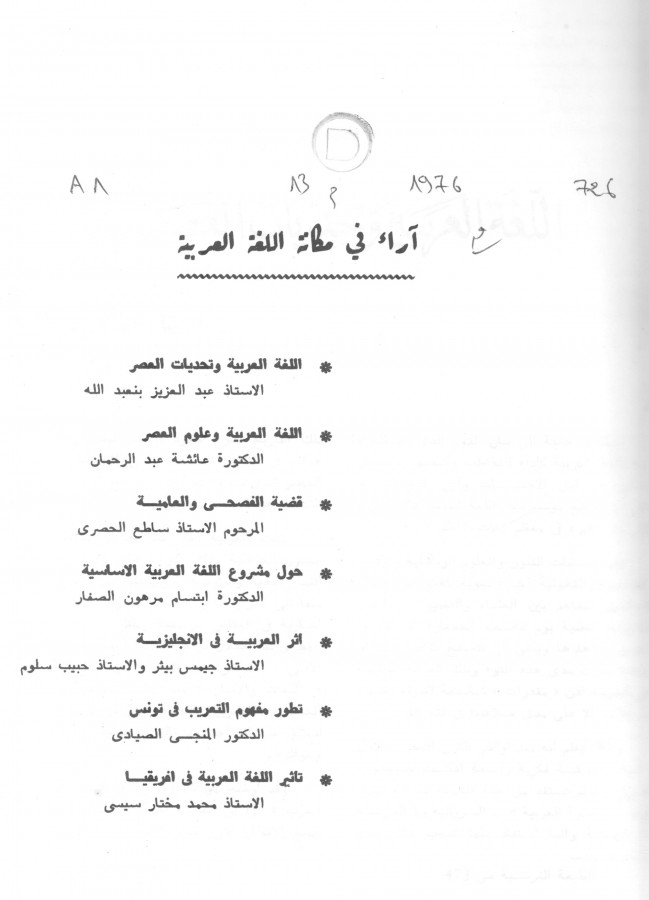 D
A1 13 م 1976 726
آراء في مكانة اللغة العربية
* اللغة العربية وتحديات العصر
الاستاذ عبد العزيز بنعبد الله
* اللغة العربية وعلوم العصر
الدكتورة عائشة عبد الرحمان
* قضية الفصحـــى والعاميــة
المرحوم الاستاذ ساطع الحصرى
* حول مشروع اللغة العربية الاساسية
الدكتورة ابتسام مرهون الصفار
* اثر العربيــة فى الانجليزيــة
الاستاذ جيمس بيثر والاستاذ حبيب سلوم
* تطور مفهوم التعريب فى تونس
الدكتور المنجــى الصيادى
* تاثير اللغة العربية فى افريقيــا
الاستاذ محمد مختار سيسى